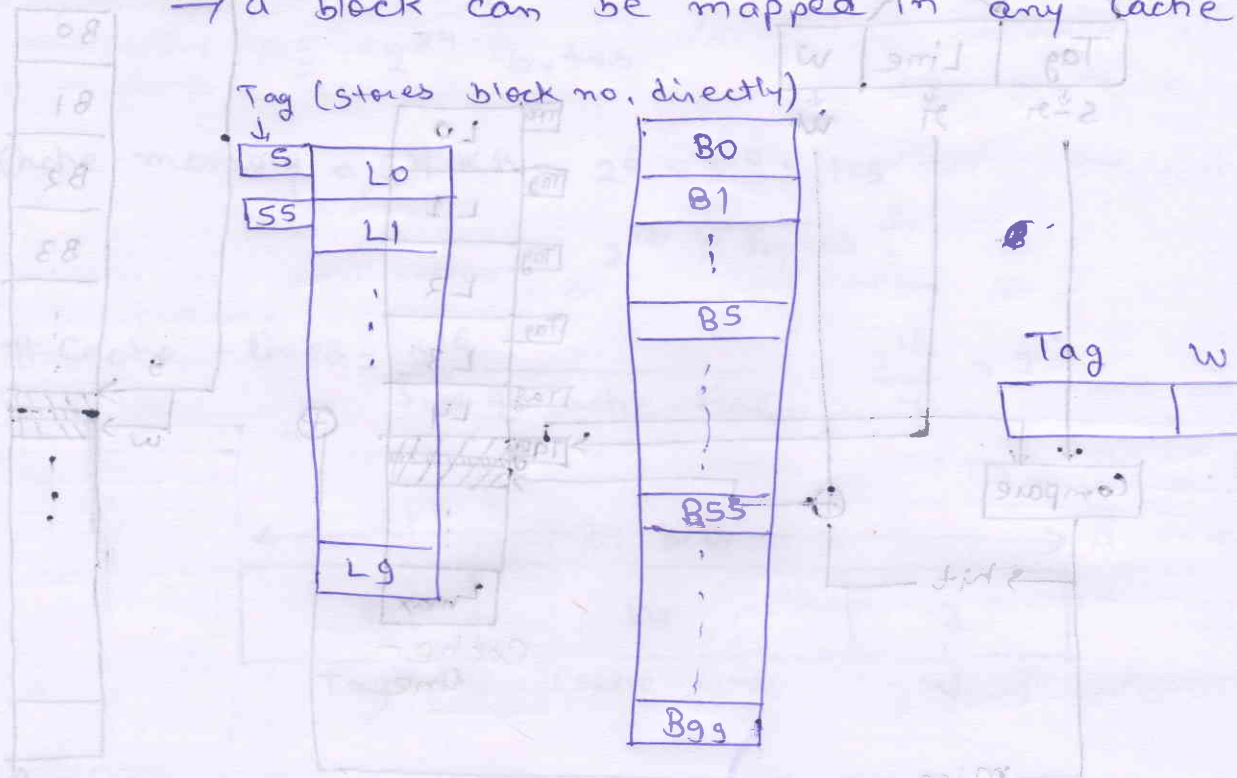 → a block can be mapped in any cache
Tag (stores block no. directly)
5 L0
55 L1
L9
B0
B1
B5
B55
B99
Tag W